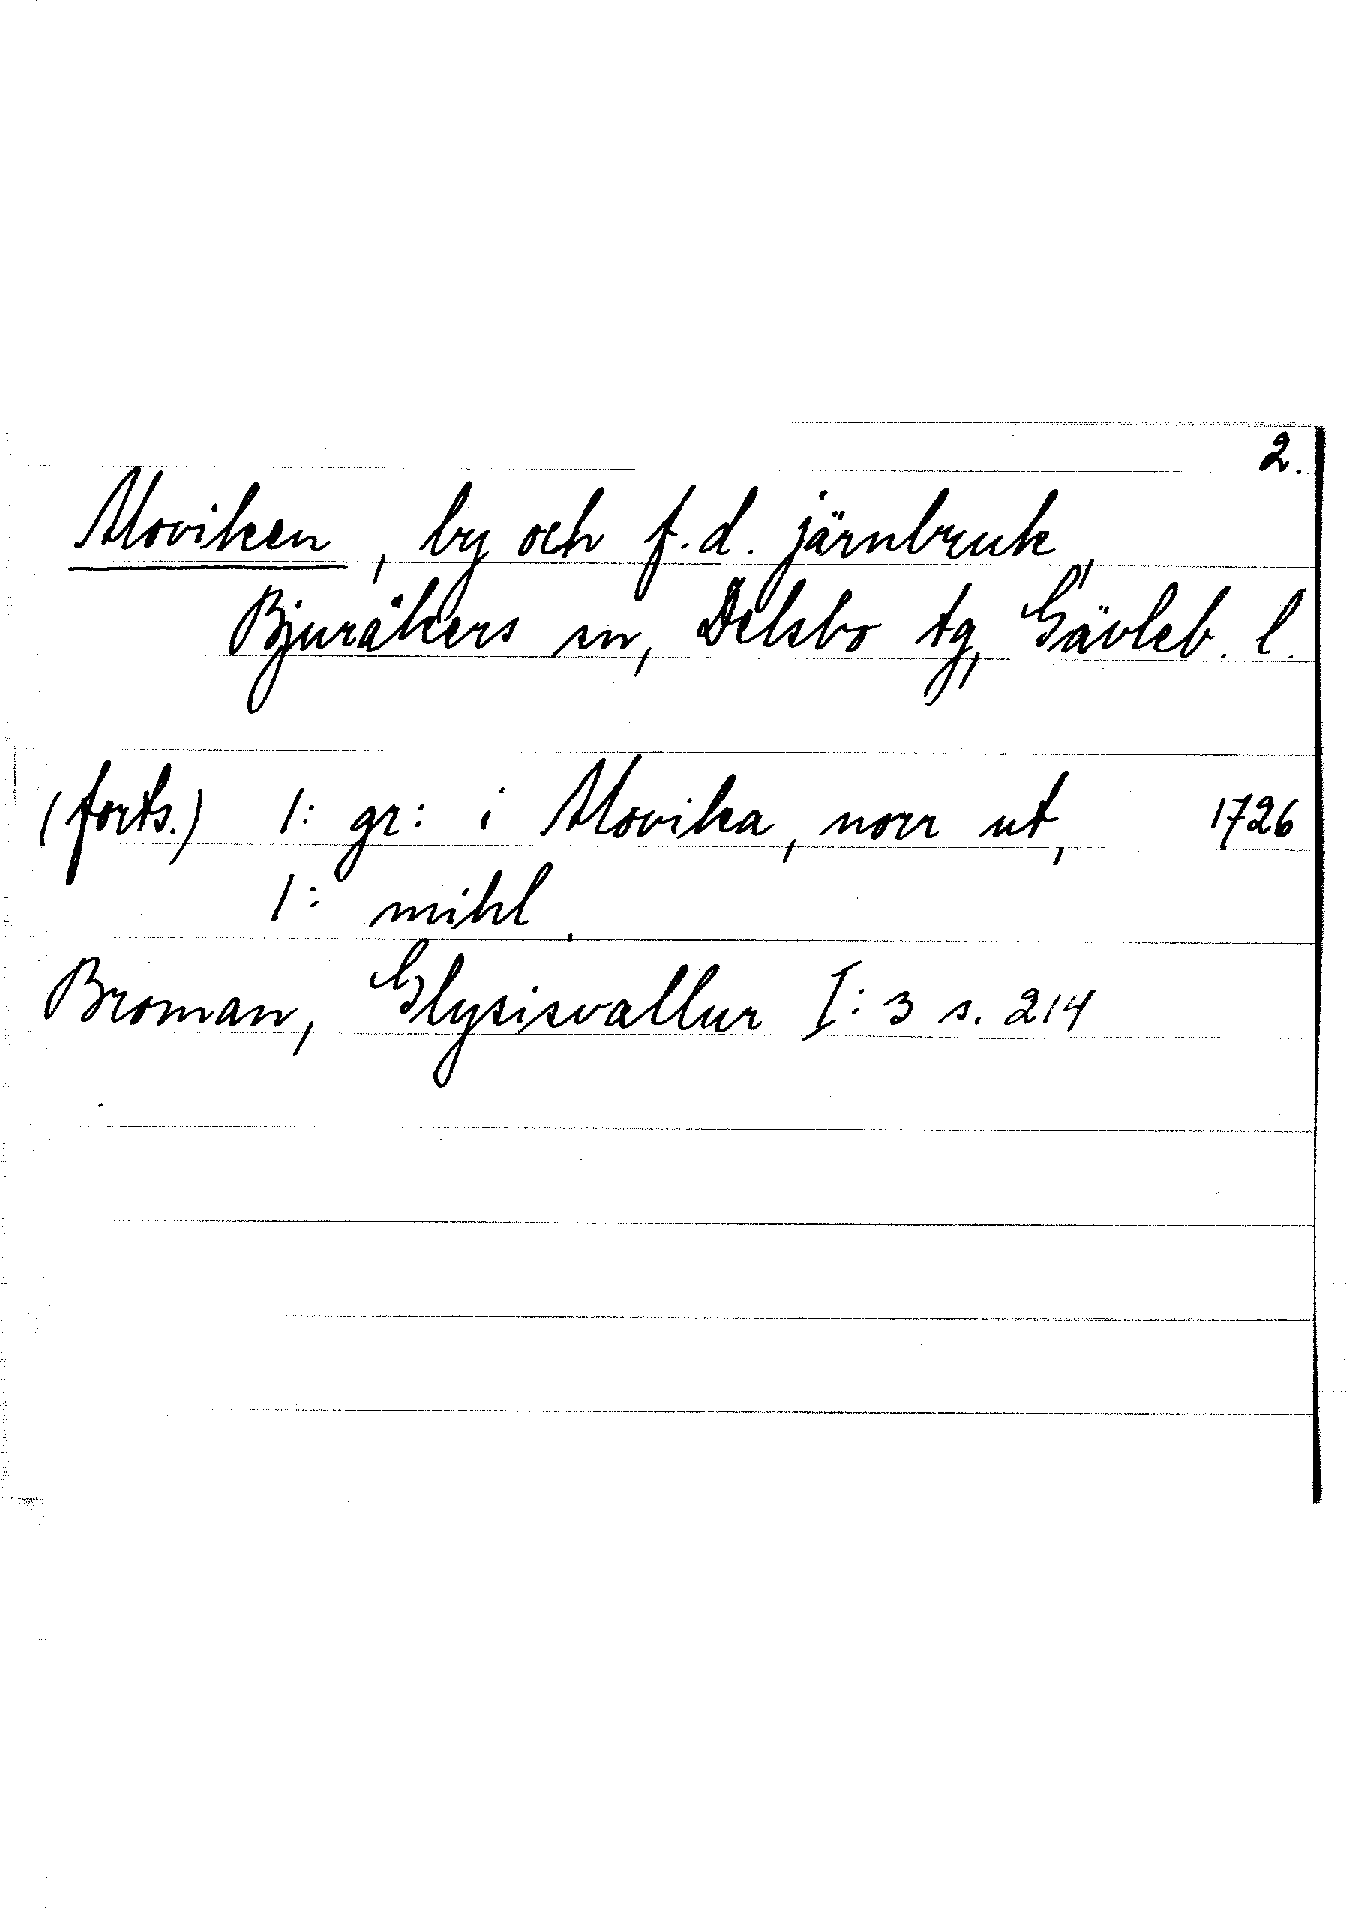 2.
Moviken, by och f.d. järnbruk,
Bjuråkers sn, Delsbo tg, Gävleb. l.
(forts.) 1: gr: i Movika, norr ut, 1726
1: mihl.
Broman, Glysisvallur I: 3 s. 214